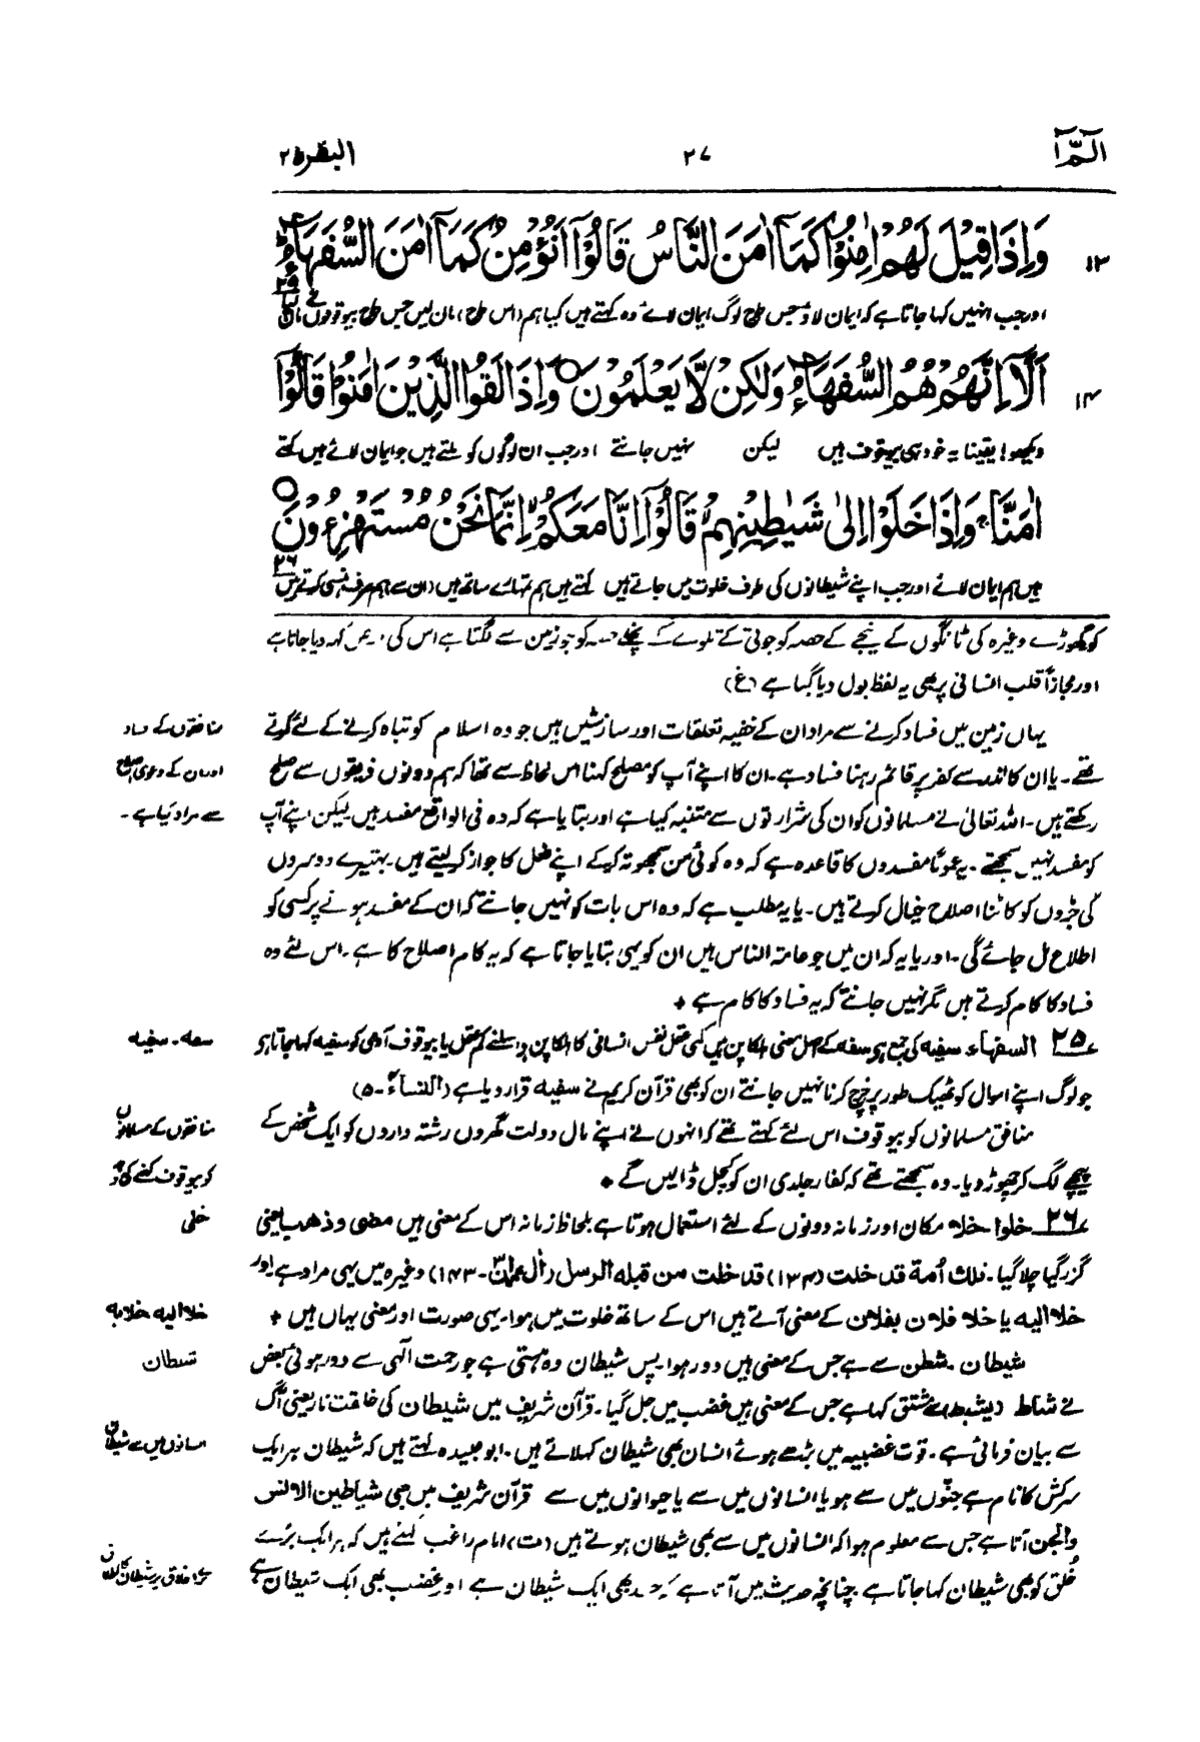 الٓمّٓ ۱ ۲۷ البقرۃ ۲
۱۳ وَاِذَا قِيْلَ لَهُمْ اٰمِنُوْا كَمَآ اٰمَنَ النَّاسُ قَالُوْٓا اَنُؤْمِنُ كَمَآ اٰمَنَ السُّفَهَآءُ ؕ ۲۵
اور جب انہیں کہا جاتا ہے کہ ایمان لاؤ جس طرح لوگ ایمان لائے وہ کہتے ہیں کیا ہم (اس طرح) مان لیں جس طرح بیوقوفوں نے مان لیا
۱۴ اَلَآ اِنَّهُمْ هُمُ السُّفَهَآءُ وَلٰكِنْ لَّا يَعْلَمُوْنَ ○ وَاِذَا لَقُوا الَّذِيْنَ اٰمَنُوْا قَالُوْٓا
دیکھو! یقینا یہ خود ہی بیوقوف ہیں لیکن نہیں جانتے اور جب ان لوگوں کو ملتے ہیں جو ایمان لائے ہیں کہتے
اٰمَنَّا ۚ وَاِذَا خَلَوْا اِلٰى شَيٰطِيْنِهِمْ قَالُوْٓا اِنَّا مَعَكُمْ اِنَّمَا نَحْنُ مُسْتَهْزِءُوْنَ ○ ۲۶
ہیں ہم ایمان لائے اور جب اپنے شیطانوں کی طرف خلوت میں جاتے ہیں کہتے ہیں ہم تمہارے ساتھ ہیں (ان سے) ہم صرف ہنسی کرتے ہیں
کو گھوڑے وغیرہ کی ٹانگوں کے نیچے کے حصہ کو جوتی کے تلوے کے نچلے حصہ کو جو زمین سے لگتا ہے اس کی کہہ دیا جاتا ہے
اور مجازاً قلب انسانی پر بھی یہ لفظ بول دیا گیا ہے (غ)
یہاں زمین میں فساد کرنے سے مراد ان کے خفیہ تعلقات اور سازشیں ہیں جو وہ اسلام کو تباہ کرنے کے لئے کرتے منافقوں کے فساد
تھے۔ یا ان کا اندر سے کفر پر قائم رہنا فساد ہے۔ ان کا اپنے آپ کو مصلح کہنا اس لحاظ سے تھا کہ ہم دونوں فریقوں سے صلح اور ان کے دعویٰ اصلاح
رکھتے ہیں۔ اللہ تعالیٰ نے مسلمانوں کو ان کی شرارتوں سے متنبہ کیا ہے اور بتایا ہے کہ وہ فی الواقع مفسد ہیں لیکن اپنے آپ سے مراد کیا ہے۔
کو مفسد نہیں سمجھتے۔ یہ عموماً مفسدوں کا قاعدہ ہے کہ وہ کوئی من سمجھوتہ کر کے اپنے فعل کا جواز کر لیتے ہیں۔ بہتیرے دوسروں
کی جڑوں کو کاٹنا اصلاح خیال کرتے ہیں۔ یا یہ مطلب ہے کہ وہ اس بات کو نہیں جانتے کہ ان کے مفسد ہونے پر کسی کو
اطلاع مل جائے گی۔ اور یا یہ کہ ان میں جو عامۃ الناس ہیں ان کو یہی بتایا جاتا ہے کہ یہ کام اصلاح کا ہے۔ اس لئے وہ
فساد کا کام کرتے ہیں مگر نہیں جانتے کہ یہ فساد کا کام ہے ٭
۲۵ السفہاء سفیہ کی جمع ہے سفہ کے اصل معنی ہلکا پن ہیں کمی عقل نفس انسانی کا ہلکا پن ہے اسلئے کم عقل یا بیوقوف آدمی کو سفیہ کہا جاتا ہے سفہ۔ سفیہ
جو لوگ اپنے اموال کو ٹھیک طور پر خرچ کرنا نہیں جانتے ان کو بھی قرآن کریم نے سفیہ قرار دیا ہے (النساء۔۵)
منافق مسلمانوں کو بیوقوف اس لئے کہتے تھے کہ انہوں نے اپنے مال دولت گھروں رشتہ داروں کو ایک شخص کے منافقوں کے مسلمانوں
پیچھے لگ کر چھوڑ دیا۔ وہ سمجھتے تھے کہ کفار جلدی ان کو کچل ڈالیں گے ٭ کو بیوقوف کہنے کی وجہ
۲۶ خلوا خلا مکان اور زمانہ دونوں کے لئے استعمال ہوتا ہے بلحاظ زمانہ اس کے معنی ہیں مضی وذھب یعنی خلی
گزر گیا چلا گیا۔ تلك أمة قد خلت (۱۳۴) قد خلت من قبله الرسل (اٰل عمرٰن۔۱۴۳) وغیرہ میں یہی مراد ہے اور
خلا الیہ یا خلا فلان بفلان کے معنی آتے ہیں اس کے ساتھ خلوت میں ہوا۔ یہی صورت اور معنی یہاں ہیں ٭ خلا الیہ خلا بہ
شیطان۔ شطن سے ہے جس کے معنی ہیں دور ہوا۔ پس شیطان وہ ہستی ہے جو رحمت الٰہی سے دور ہوئی بعض شیطان
نے شاط (یشیط) سے مشتق کہا ہے جس کے معنی ہیں غضب میں جل گیا۔ قرآن شریف میں شیطان کی خلقت نار یعنی آگ
سے بیان فرمائی ہے۔ قوت غضبیہ میں بڑھے ہوئے انسان بھی شیطان کہلاتے ہیں۔ ابو عبیدہ کہتے ہیں کہ شیطان ہر ایک انسانوں میں سے شیطان
سرکش کا نام ہے جنّوں میں سے ہو یا انسانوں میں سے یا حیوانوں میں سے قرآن شریف میں بھی شیاطین الانس
والجن آتا ہے جس سے معلوم ہوا کہ انسانوں میں سے بھی شیطان ہوتے ہیں (ت) امام راغب کہتے ہیں کہ ہر ایک بُرے
خُلق کو بھی شیطان کہا جاتا ہے چنانچہ حدیث میں آتا ہے کہ حسد بھی ایک شیطان ہے اور غضب بھی ایک شیطان ہے بُرے اخلاق پر شیطان کا لفظ